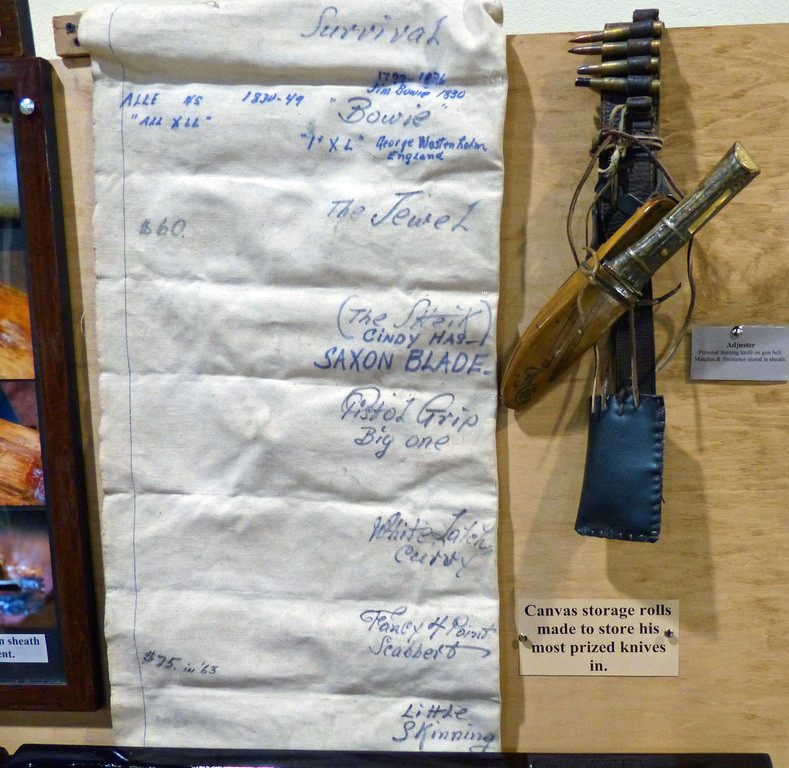 Survival
1799-1836
Jim Bowie 1830
ALLE NS 1830-49 "Bowie"
"ALL XLL"
"I*XL" George Wostenholm
England
The Jewel
$60.
(The Sheik)
CINDY HAS
SAXON BLADE.
Pistol Grip
Big one
White Latch
Curvy
Fancy 4 Point
Scabbert
$75. in '63
Little
Skinning
Adjuster
Personal hunting knife on gun belt.
Matches & firestarter stored in sheath.
Canvas storage rolls
made to store his
most prized knives
in.
n sheath
ent.